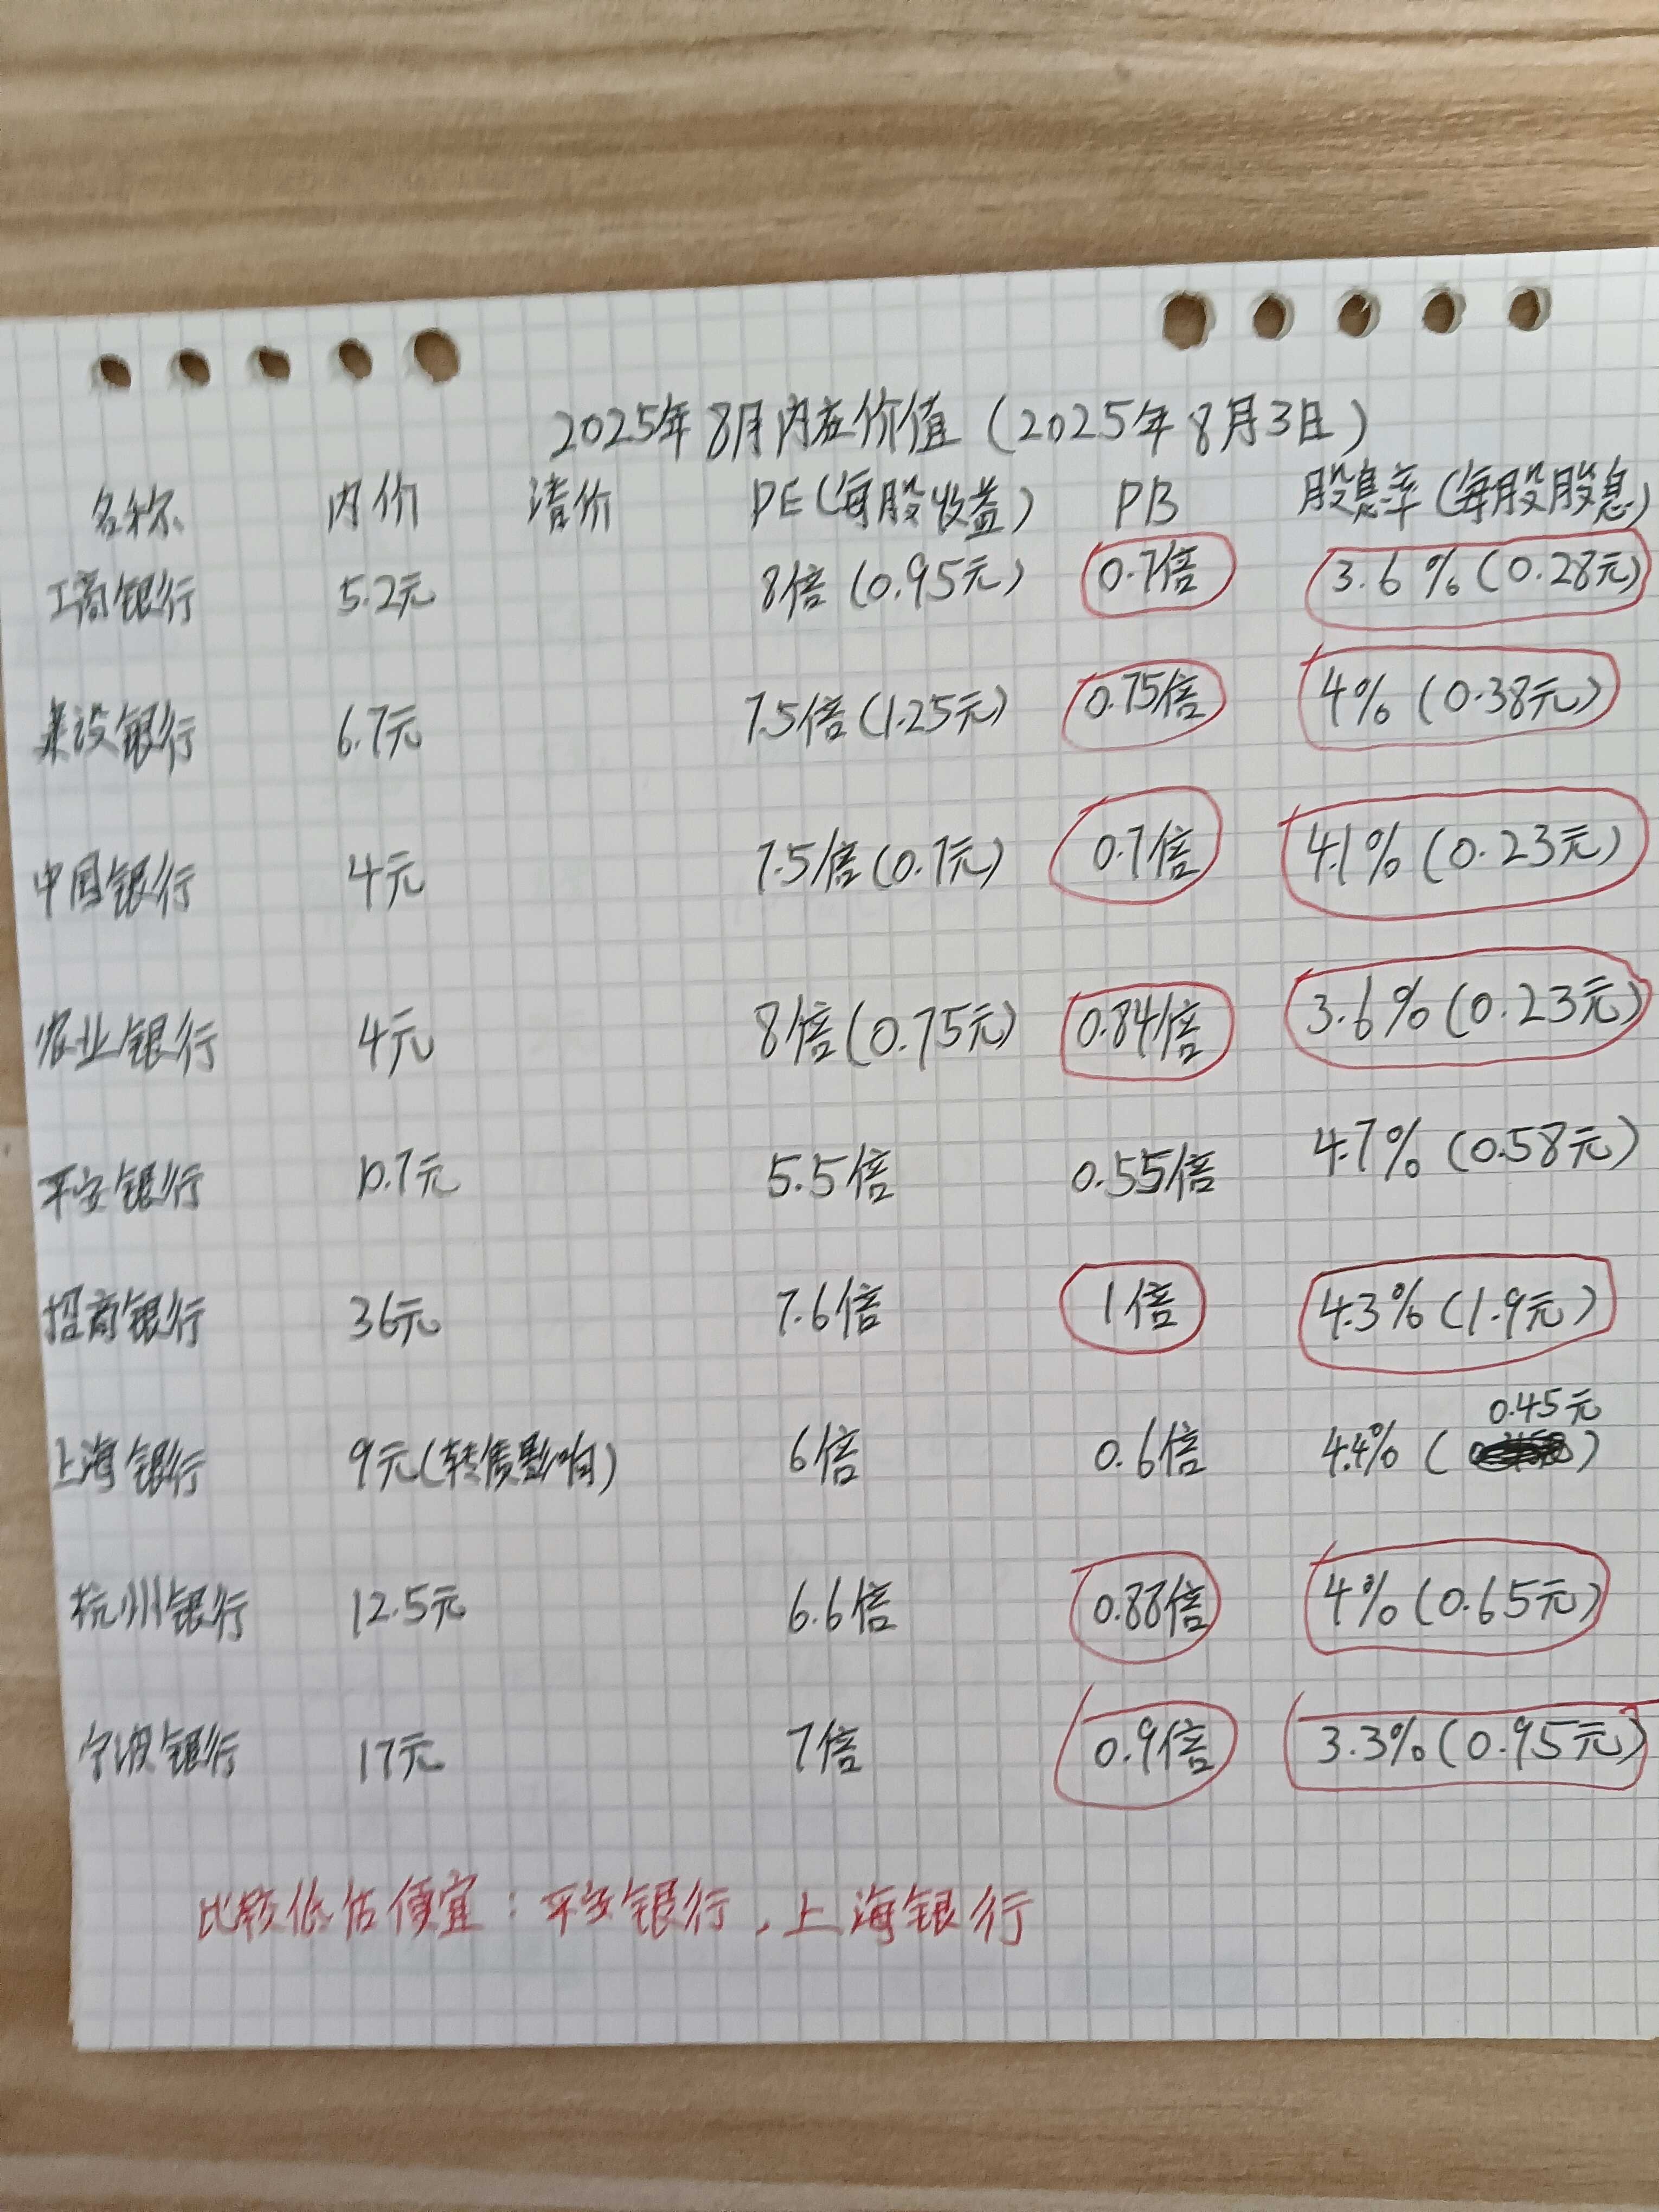 2025年8月内在价值（2025年8月3日）
名称 内价 清价 PE（每股收益） PB 股息率（每股股息）
工商银行 5.2元 8倍（0.95元） 0.7倍 3.6%（0.28元）
建设银行 6.7元 7.5倍（1.25元） 0.75倍 4%（0.38元）
中国银行 4元 7.5倍（0.7元） 0.7倍 4.1%（0.23元）
农业银行 4元 8倍（0.75元） 0.84倍 3.6%（0.23元）
平安银行 10.7元 5.5倍 0.55倍 4.7%（0.58元）
招商银行 36元 7.6倍 1倍 4.3%（1.9元）
上海银行 9元（转债影响） 6倍 0.6倍 4.4%（0.45元）
杭州银行 12.5元 6.6倍 0.88倍 4%（0.65元）
宁波银行 17元 7倍 0.9倍 3.3%（0.95元）
比较低估便宜：平安银行，上海银行